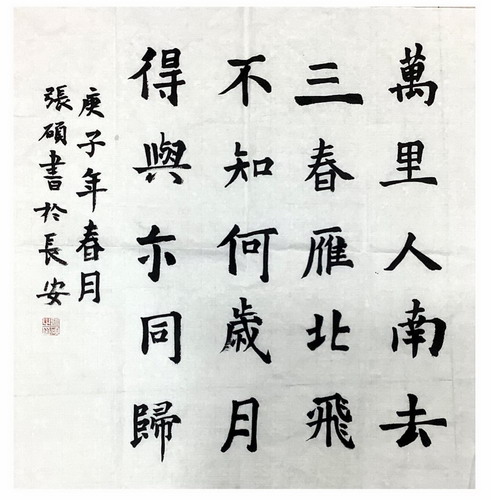 萬里人南去
三春雁北飛
不知何歲月
得與尓同歸
庚子年春月
張碩書於長安